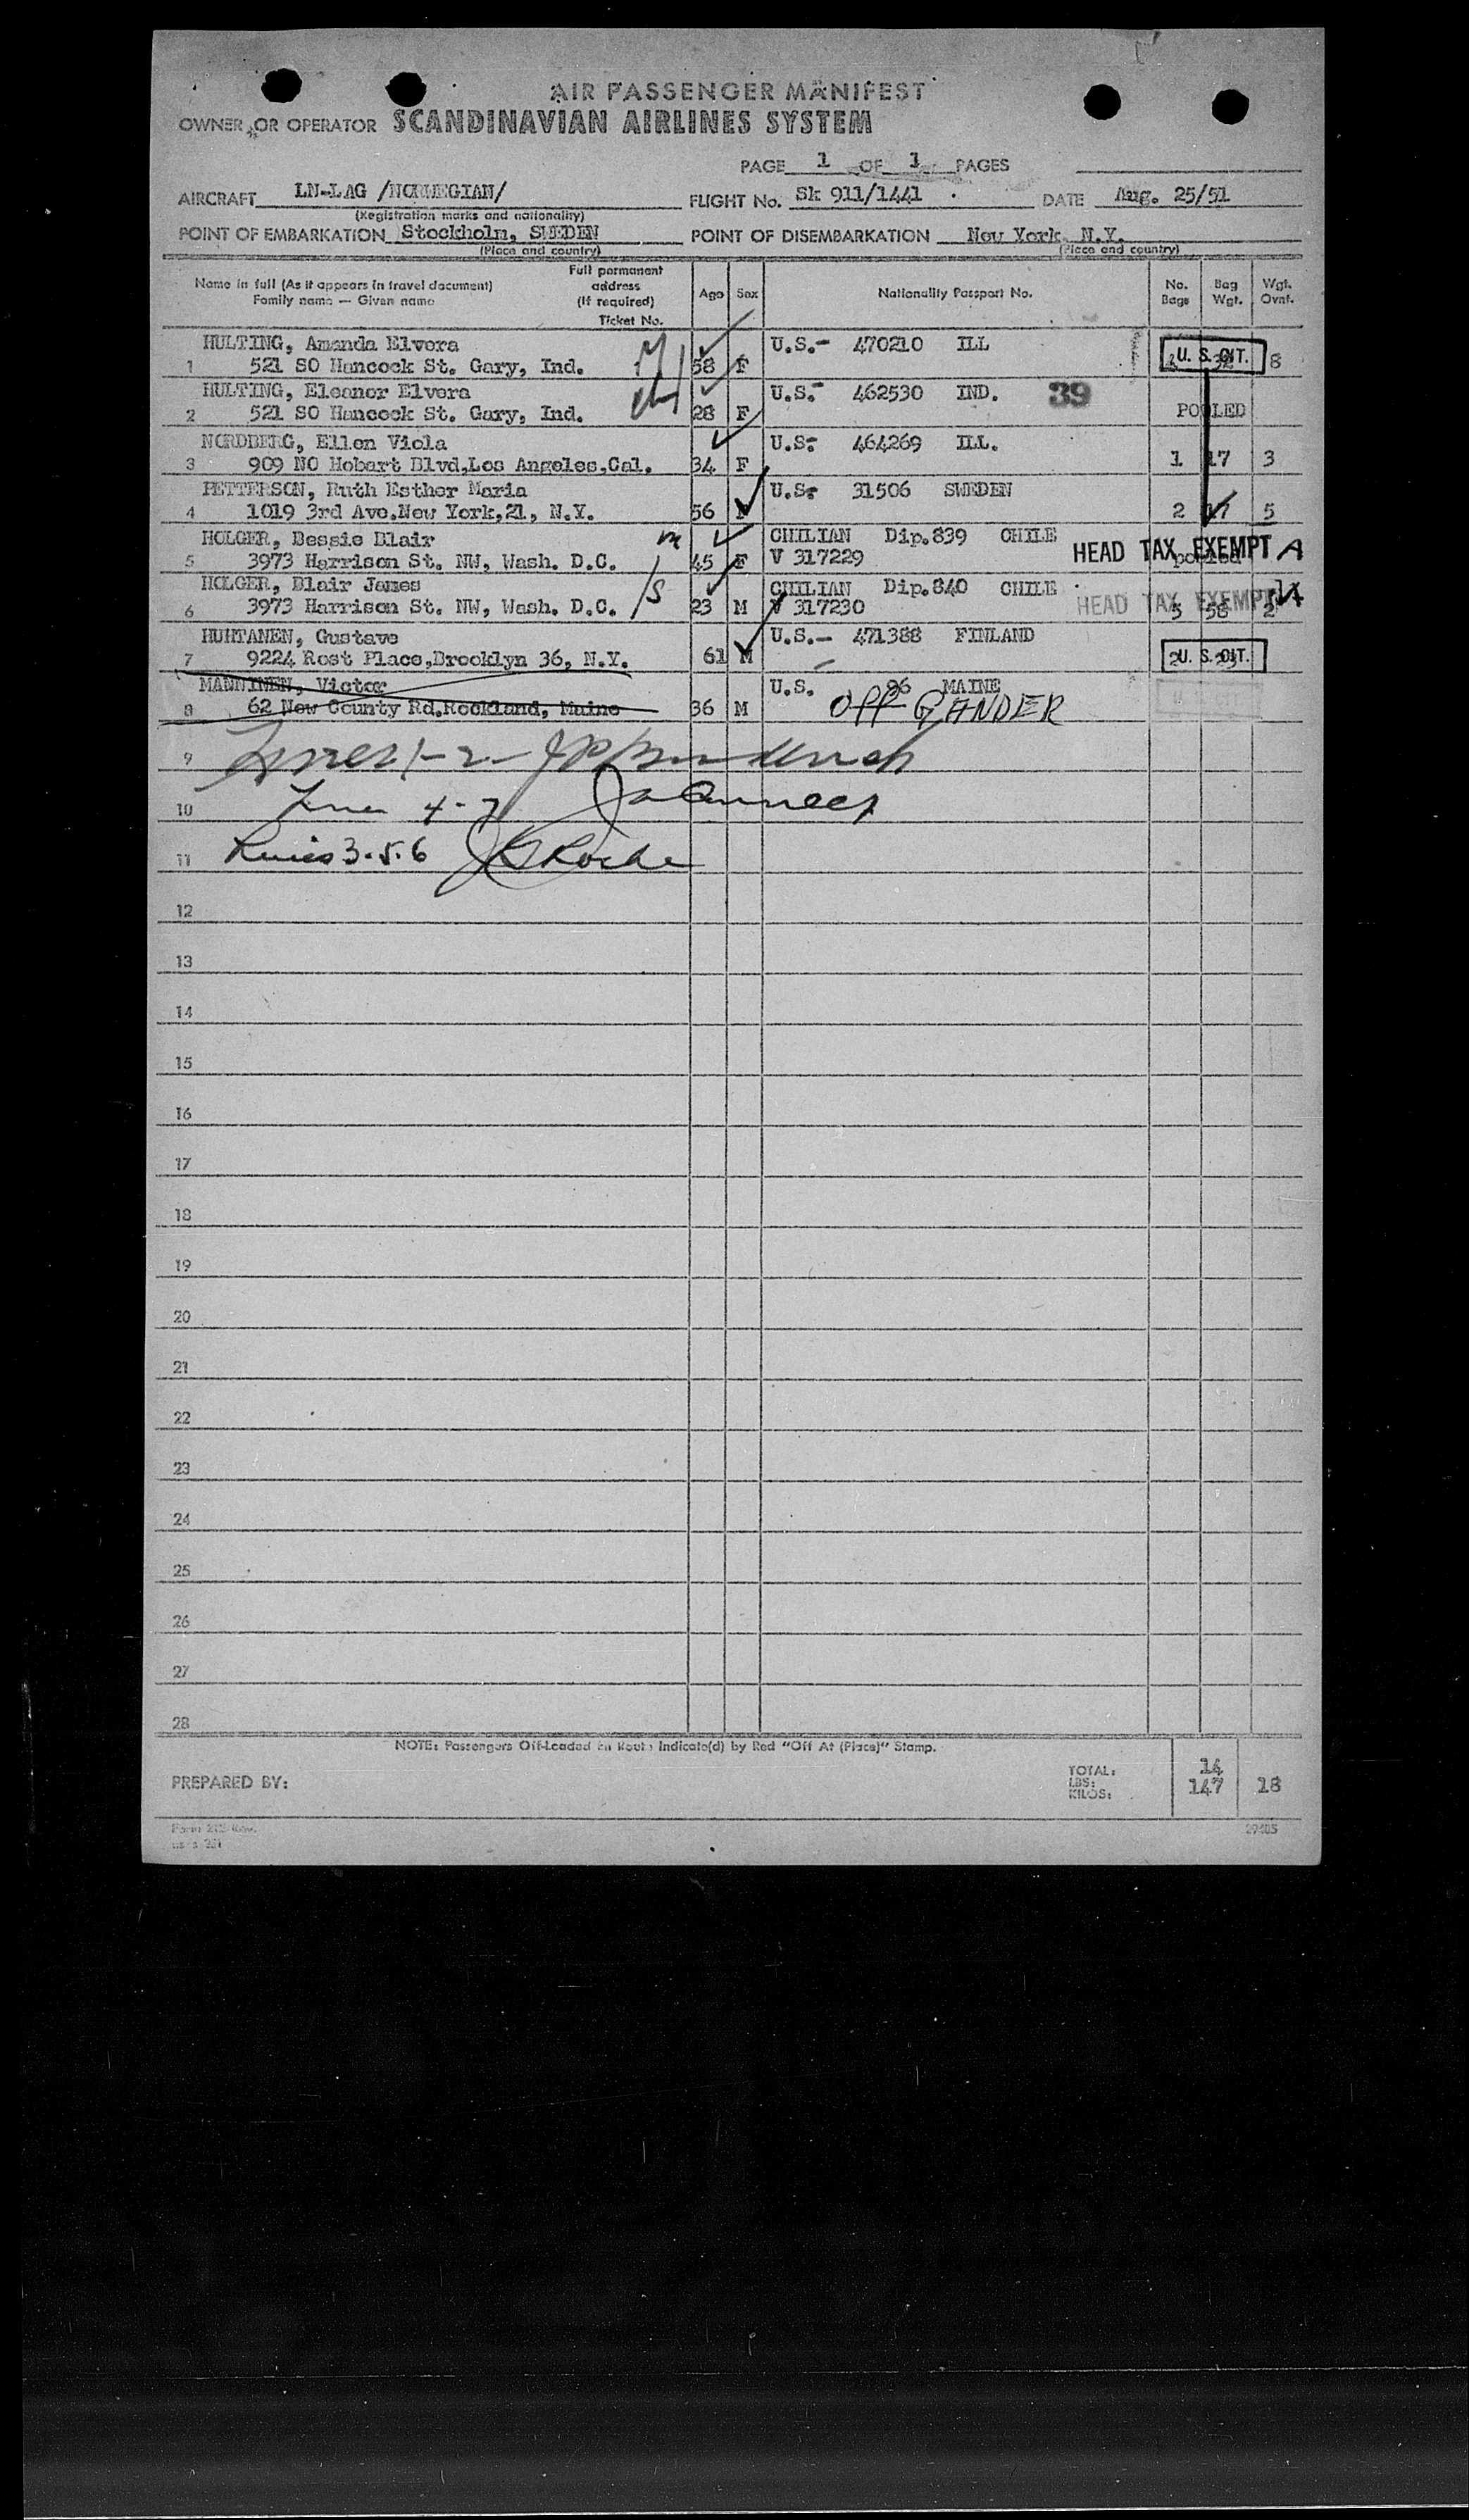 AIR PASSENGER MANIFEST
OWNER OR OPERATOR SCANDINAVIAN AIRLINES SYSTEM
PAGE 1 OF 1 PAGES
AIRCRAFT LN-LAG /NORWEGIAN/ FLIGHT No. Sk 911/1441 DATE Aug. 25/51
(Registration marks and nationality)
POINT OF EMBARKATION Stockholm, SWEDEN POINT OF DISEMBARKATION New York, N.Y.
(Place and country) (Place and country)
Name in full (As it appears in travel document) Family name — Given name Full permanent address (If required) Ticket No. Age Sex Nationality Passport No. No. Bags Bag Wgt. Wgt. Ovnt.
HULTING, Amanda Elvera U.S.- 470210 ILL
1 521 SO Hancock St. Gary, Ind. 58 F U. S. CIT. 8
HULTING, Eleanor Elvera U.S.- 462530 IND. 39
2 521 SO Hancock St. Gary, Ind. 28 F POOLED
NORDBERG, Ellen Viola U.S- 464269 ILL.
3 909 NO Hobart Blvd,Los Angeles,Cal. 34 F 1 17 3
PETTERSON, Ruth Esther Maria U.S- 31506 SWEDEN
4 1019 3rd Ave,New York,21, N.Y. 56 F 2 17 5
HOLGER, Bessie Blair CHILIAN Dip.839 CHILE
5 3973 Harrison St. NW, Wash. D.C. 45 F V 317229 HEAD TAX EXEMPT A pooled
HOLGER, Blair James CHILIAN Dip.840 CHILE
6 3973 Harrison St. NW, Wash. D.C. 23 M V 317230 HEAD TAX EXEMPT 5 58 2
HUHTANEN, Gustave U.S.- 471388 FINLAND
7 9224 Rost Place,Brooklyn 36, N.Y. 61 M U. S. CIT.
MANNINEN, Victor U.S. 96 MAINE
8 62 New County Rd,Rockland, Maine 36 M OFF GANDER
9
10 4-7
11 3.5.6 Roche
12
13
14
15
16
17
18
19
20
21
22
23
24
25
26
27
28
NOTE: Passengers Off-Loaded En Route Indicate(d) by Red "Off At (Place)" Stamp.
PREPARED BY:
TOTAL: 14
LBS:
KILOS: 147 18
29485